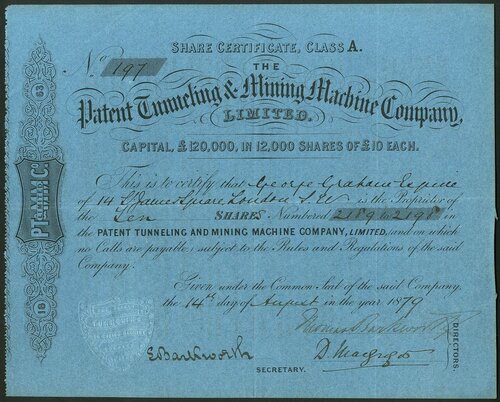 SHARE CERTIFICATE, CLASS A.
No 197
THE
Patent Tunneling & Mining Machine Company,
LIMITED.
CAPITAL, £120,000, IN 12,000 SHARES OF £10 EACH.
This is to certify that George Graham Esquire
of 14 St James Square London S.W is the Proprietor of
the Ten SHARES Numbered 2189 to 2198 in
the PATENT TUNNELING AND MINING MACHINE COMPANY, LIMITED, and on which
no Calls are payable; subject to the Rules and Regulations of the said
Company.
Given under the Common Seal of the said Company,
the 14th day of August in the year 1879
Thomas Barkworth
E Barkworth
SECRETARY.
DIRECTORS.
63
18